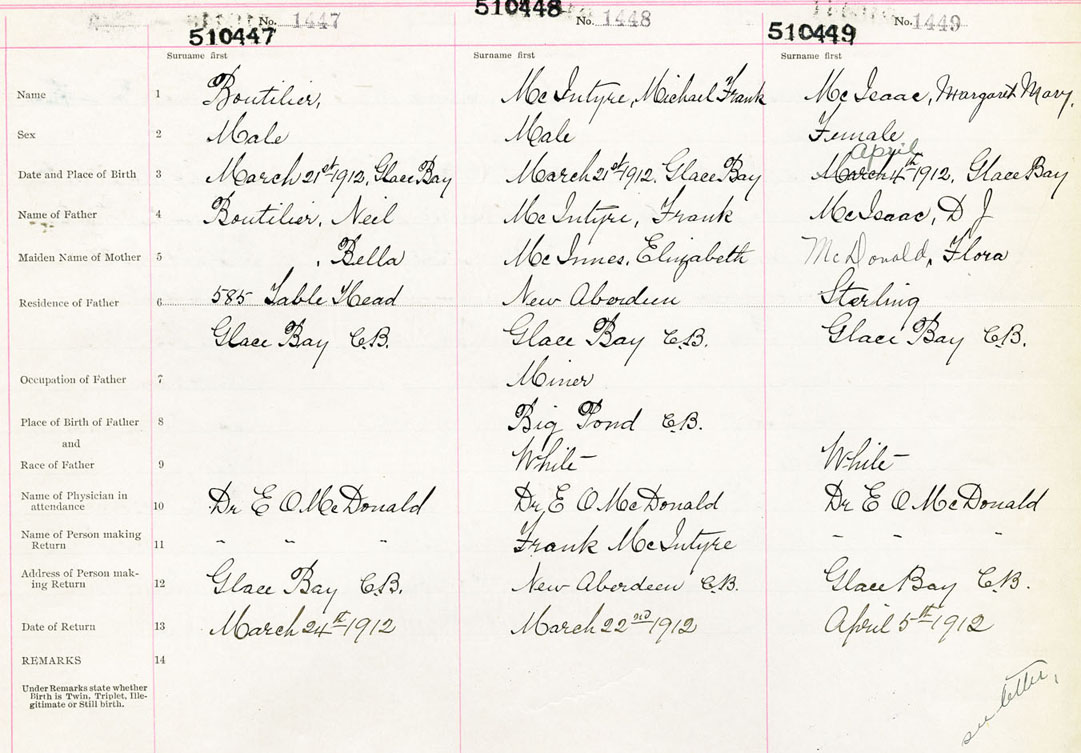 No. 1447
510447
510448
No. 1448
No. 1449
510449
Surname first Surname first Surname first
Name 1 Boutilier, McIntyre, Michael Frank McIsaac, Margaret Mary,
Sex 2 Male Male Female
April
Date and Place of Birth 3 March 21st 1912, Glace Bay March 21st 1912, Glace Bay March 4th 1912, Glace Bay
Name of Father 4 Boutilier, Neil McIntyre, Frank McIsaac, D J
Maiden Name of Mother 5 , Bella McInnes, Elizabeth McDonald, Flora
Residence of Father 6 585 Table Head New Aberdeen Sterling
Glace Bay C.B. Glace Bay C.B. Glace Bay C.B.
Occupation of Father 7 Miner
Place of Birth of Father 8 Big Pond C.B.
and
Race of Father 9 White White
Name of Physician in
attendance 10 Dr E O McDonald Dr E O McDonald Dr E O McDonald
Name of Person making
Return 11 " " " Frank McIntyre " " "
Address of Person mak-
ing Return 12 Glace Bay C.B. New Aberdeen C.B. Glace Bay C.B.
Date of Return 13 March 24th 1912 March 22nd 1912 April 5th 1912
REMARKS 14
Under Remarks state whether
Birth is Twin, Triplet, Ille-
gitimate or Still birth.
see letter,